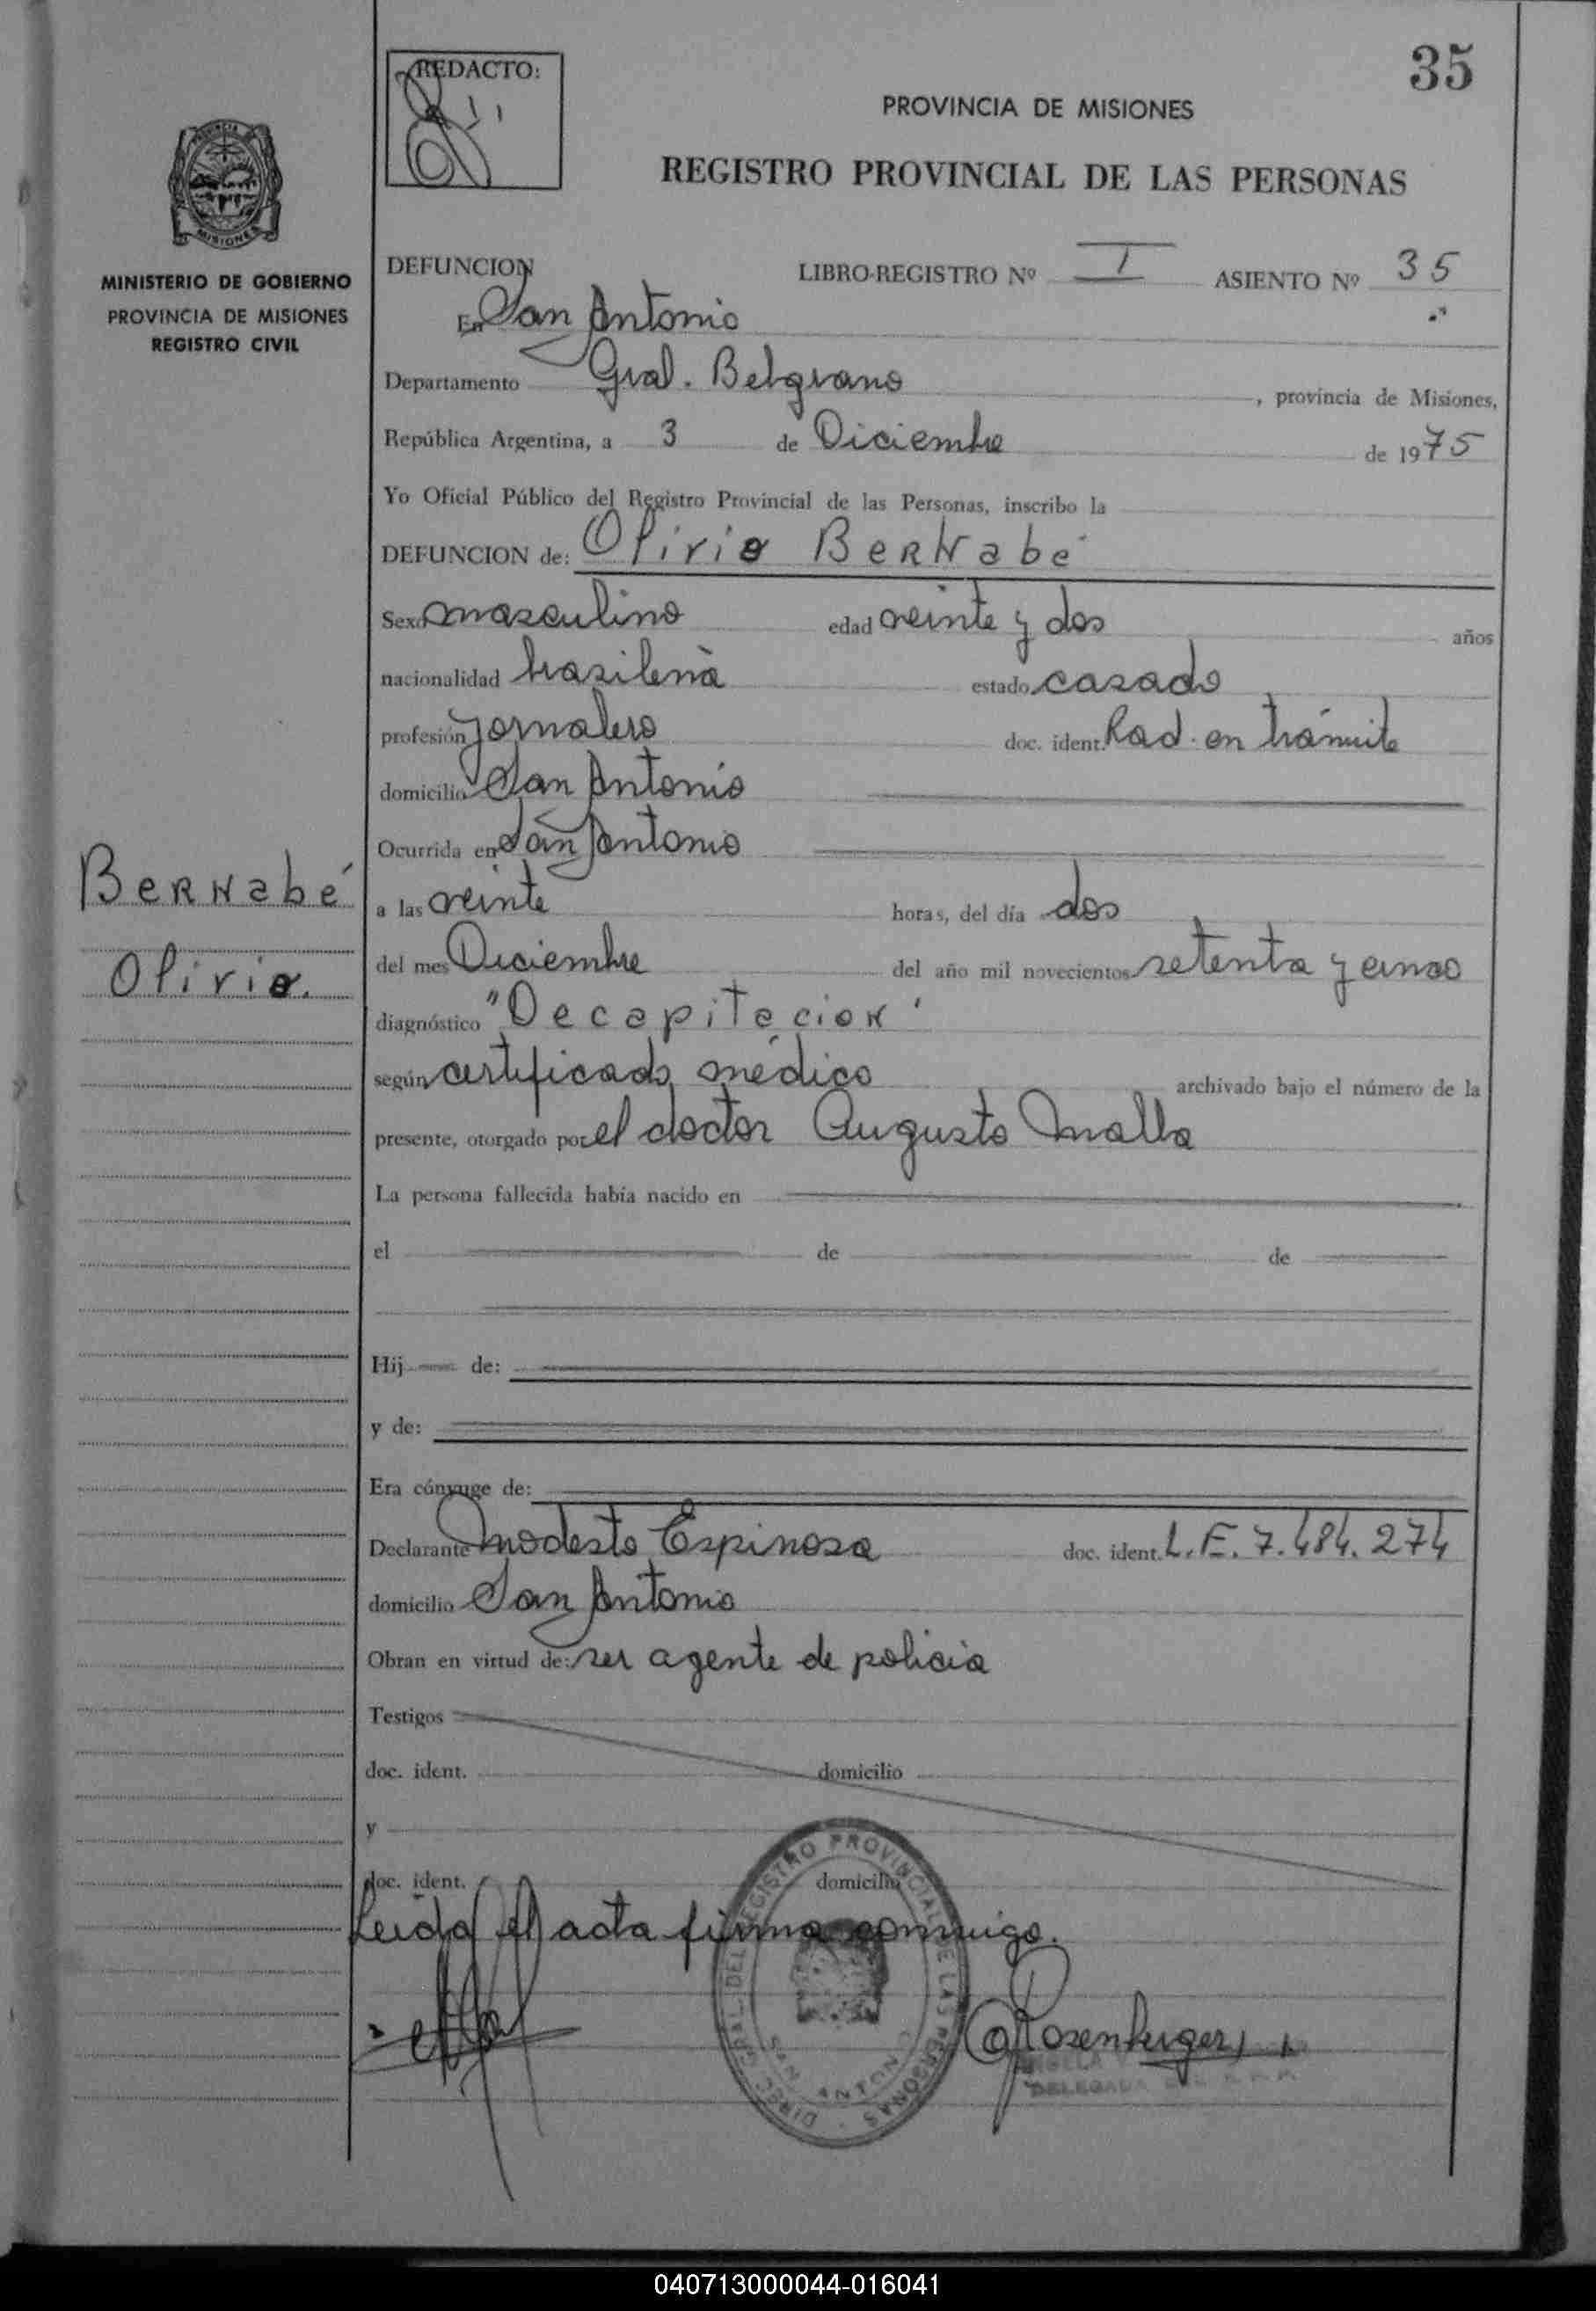 35
REDACTO:
PROVINCIA DE MISIONES
REGISTRO PROVINCIAL DE LAS PERSONAS
MISIONES
MINISTERIO DE GOBIERNO
PROVINCIA DE MISIONES
REGISTRO CIVIL
DEFUNCION LIBRO-REGISTRO Nº I ASIENTO Nº 35
En San Antonio
Departamento Gral. Belgrano, provincia de Misiones,
República Argentina, a 3 de Diciembre de 1975
Yo Oficial Público del Registro Provincial de las Personas, inscribo la
DEFUNCION de: Olirio Bernabé
Sexo masculino edad veinte y dos años
nacionalidad brasileña estado casado
profesión jornalero doc. ident. Rad. en trámite
domicilio San Antonio
Ocurrida en San Antonio
Bernabé
Olirio.
a las veinte horas, del día dos
del mes Diciembre del año mil novecientos setenta y cinco
diagnóstico "Decapitacion"
según certificado médico archivado bajo el número de la
presente, otorgado por el doctor Augusto Malla
La persona fallecida había nacido en
el de de
Hij de:
y de:
Era cónyuge de:
Declarante Modesto Espinosa doc. ident. L.E. 7.484.274
domicilio San Antonio
Obran en virtud de: ser agente de policia
Testigos
doc. ident. domicilio
y
doc. ident. domicilio
Leida el acta firma conmigo.
DIREC. GRAL. DEL REGISTRO PROVINCIAL DE LAS PERSONAS
SAN ANTONIO
Rosenberger
ANGELA
DELEGADA
040713000044-016041